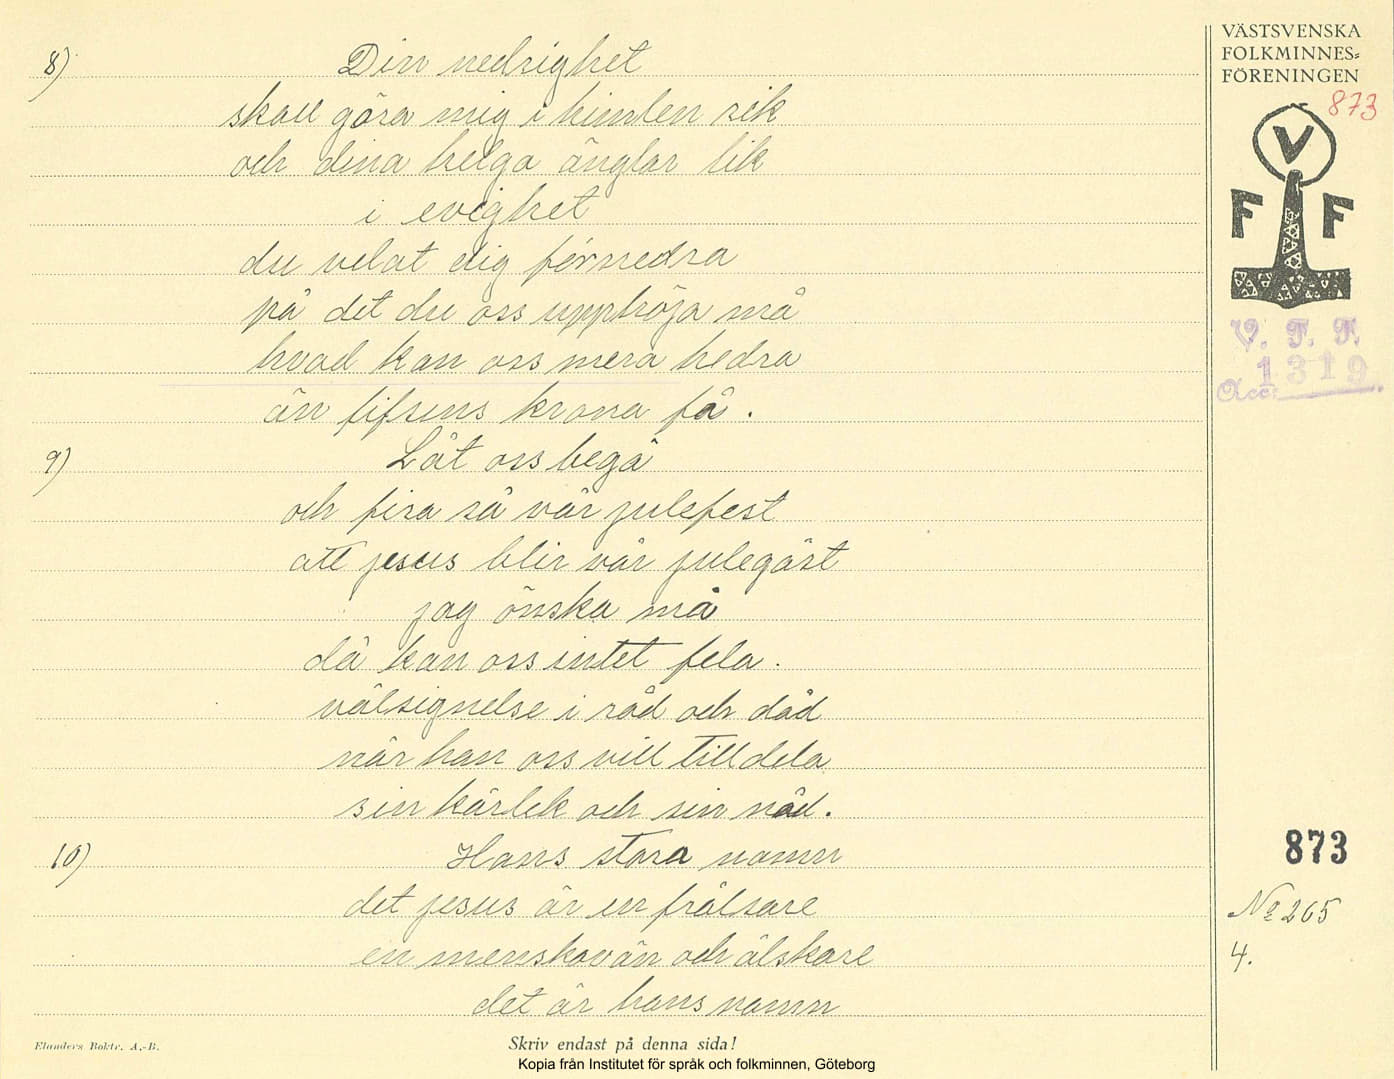 VÄSTSVENSKA
FOLKMINNES=
FÖRENINGEN
873
V
F F
V. F. F.
1319
Acc:
8) Din nedrighet
skall göra mig i himlen rik
och dina helga änglar lik
i evighet
du velat dig förnedra
på det du oss upphöja må
hvad kan oss mera hedra
än lifsens krona få.
9) Låt oss begå
och fira så vår julefest
att jesus blir vår julegäst
jag önska må
då kan oss intet fela.
välsignelse i råd och dåd
när han oss vill tilldela
sin kärlek och sin nåd.
10) Hans stora namn
det jesus är en frälsare
en menskovän och älskare
det är hans namn
873
No 265
4.
Elanders Boktr. A.-B.
Skriv endast på denna sida!
Kopia från Institutet för språk och folkminnen, Göteborg